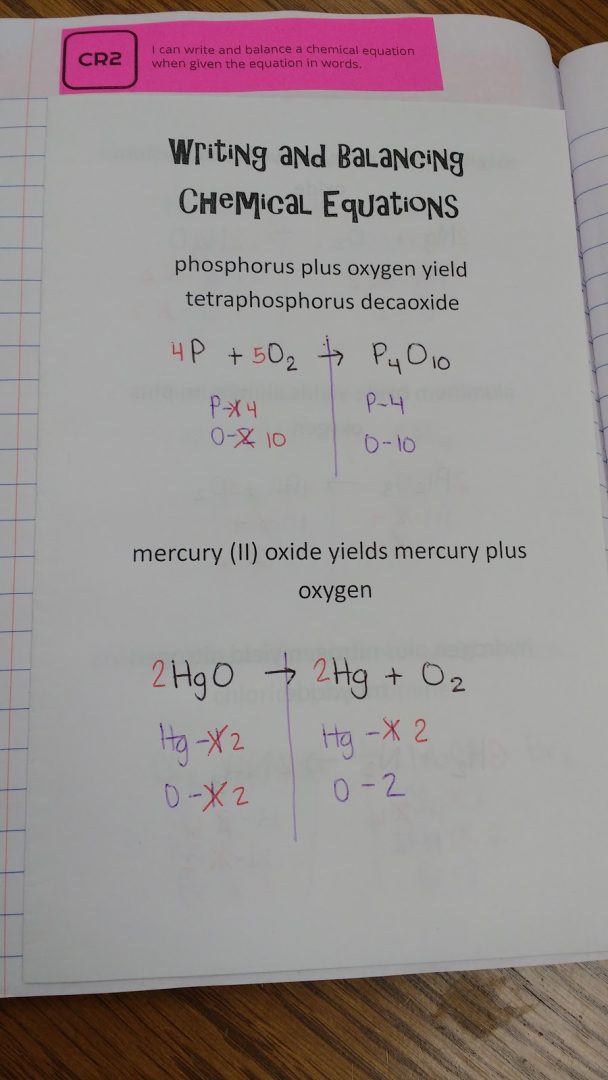 CR2
I can write and balance a chemical equation
when given the equation in words.
Writing and Balancing
Chemical Equations
phosphorus plus oxygen yield
tetraphosphorus decaoxide
4P + 5O₂ → P₄O₁₀
P-1 4 P-4
O-2 10 O-10
mercury (II) oxide yields mercury plus
oxygen
2HgO → 2Hg + O₂
Hg-1 2 Hg-1 2
O-1 2 O-2